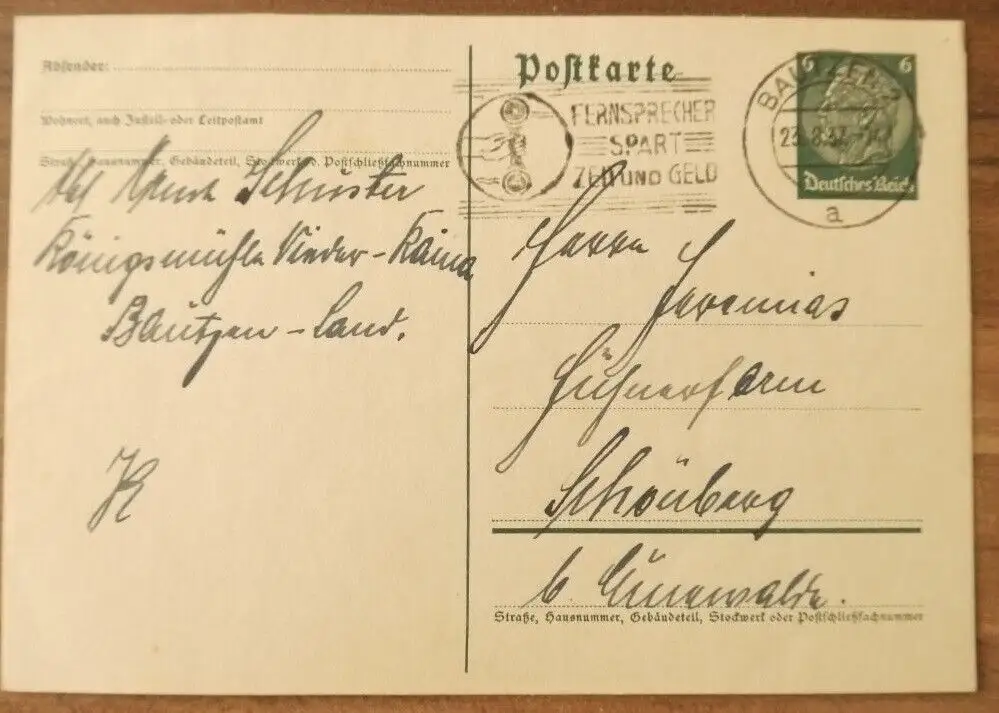 Absender:
Wohnort, auch Zustell- oder Leitpostamt
Straße, Hausnummer, Gebäudeteil, Stockwerk od. Postschließfachnummer
Schuster
Königsmühle Nieder-Kaina
Bautzen-Land.
Postkarte
FERNSPRECHER
SPART
ZEIT UND GELD
BAUTZEN 2
a
6 6
Deutsches Reich
Herrn
Jeremias
Hühnerfarm
Schönberg
b. Cunewalde.
Straße, Hausnummer, Gebäudeteil, Stockwerk oder Postschließfachnummer